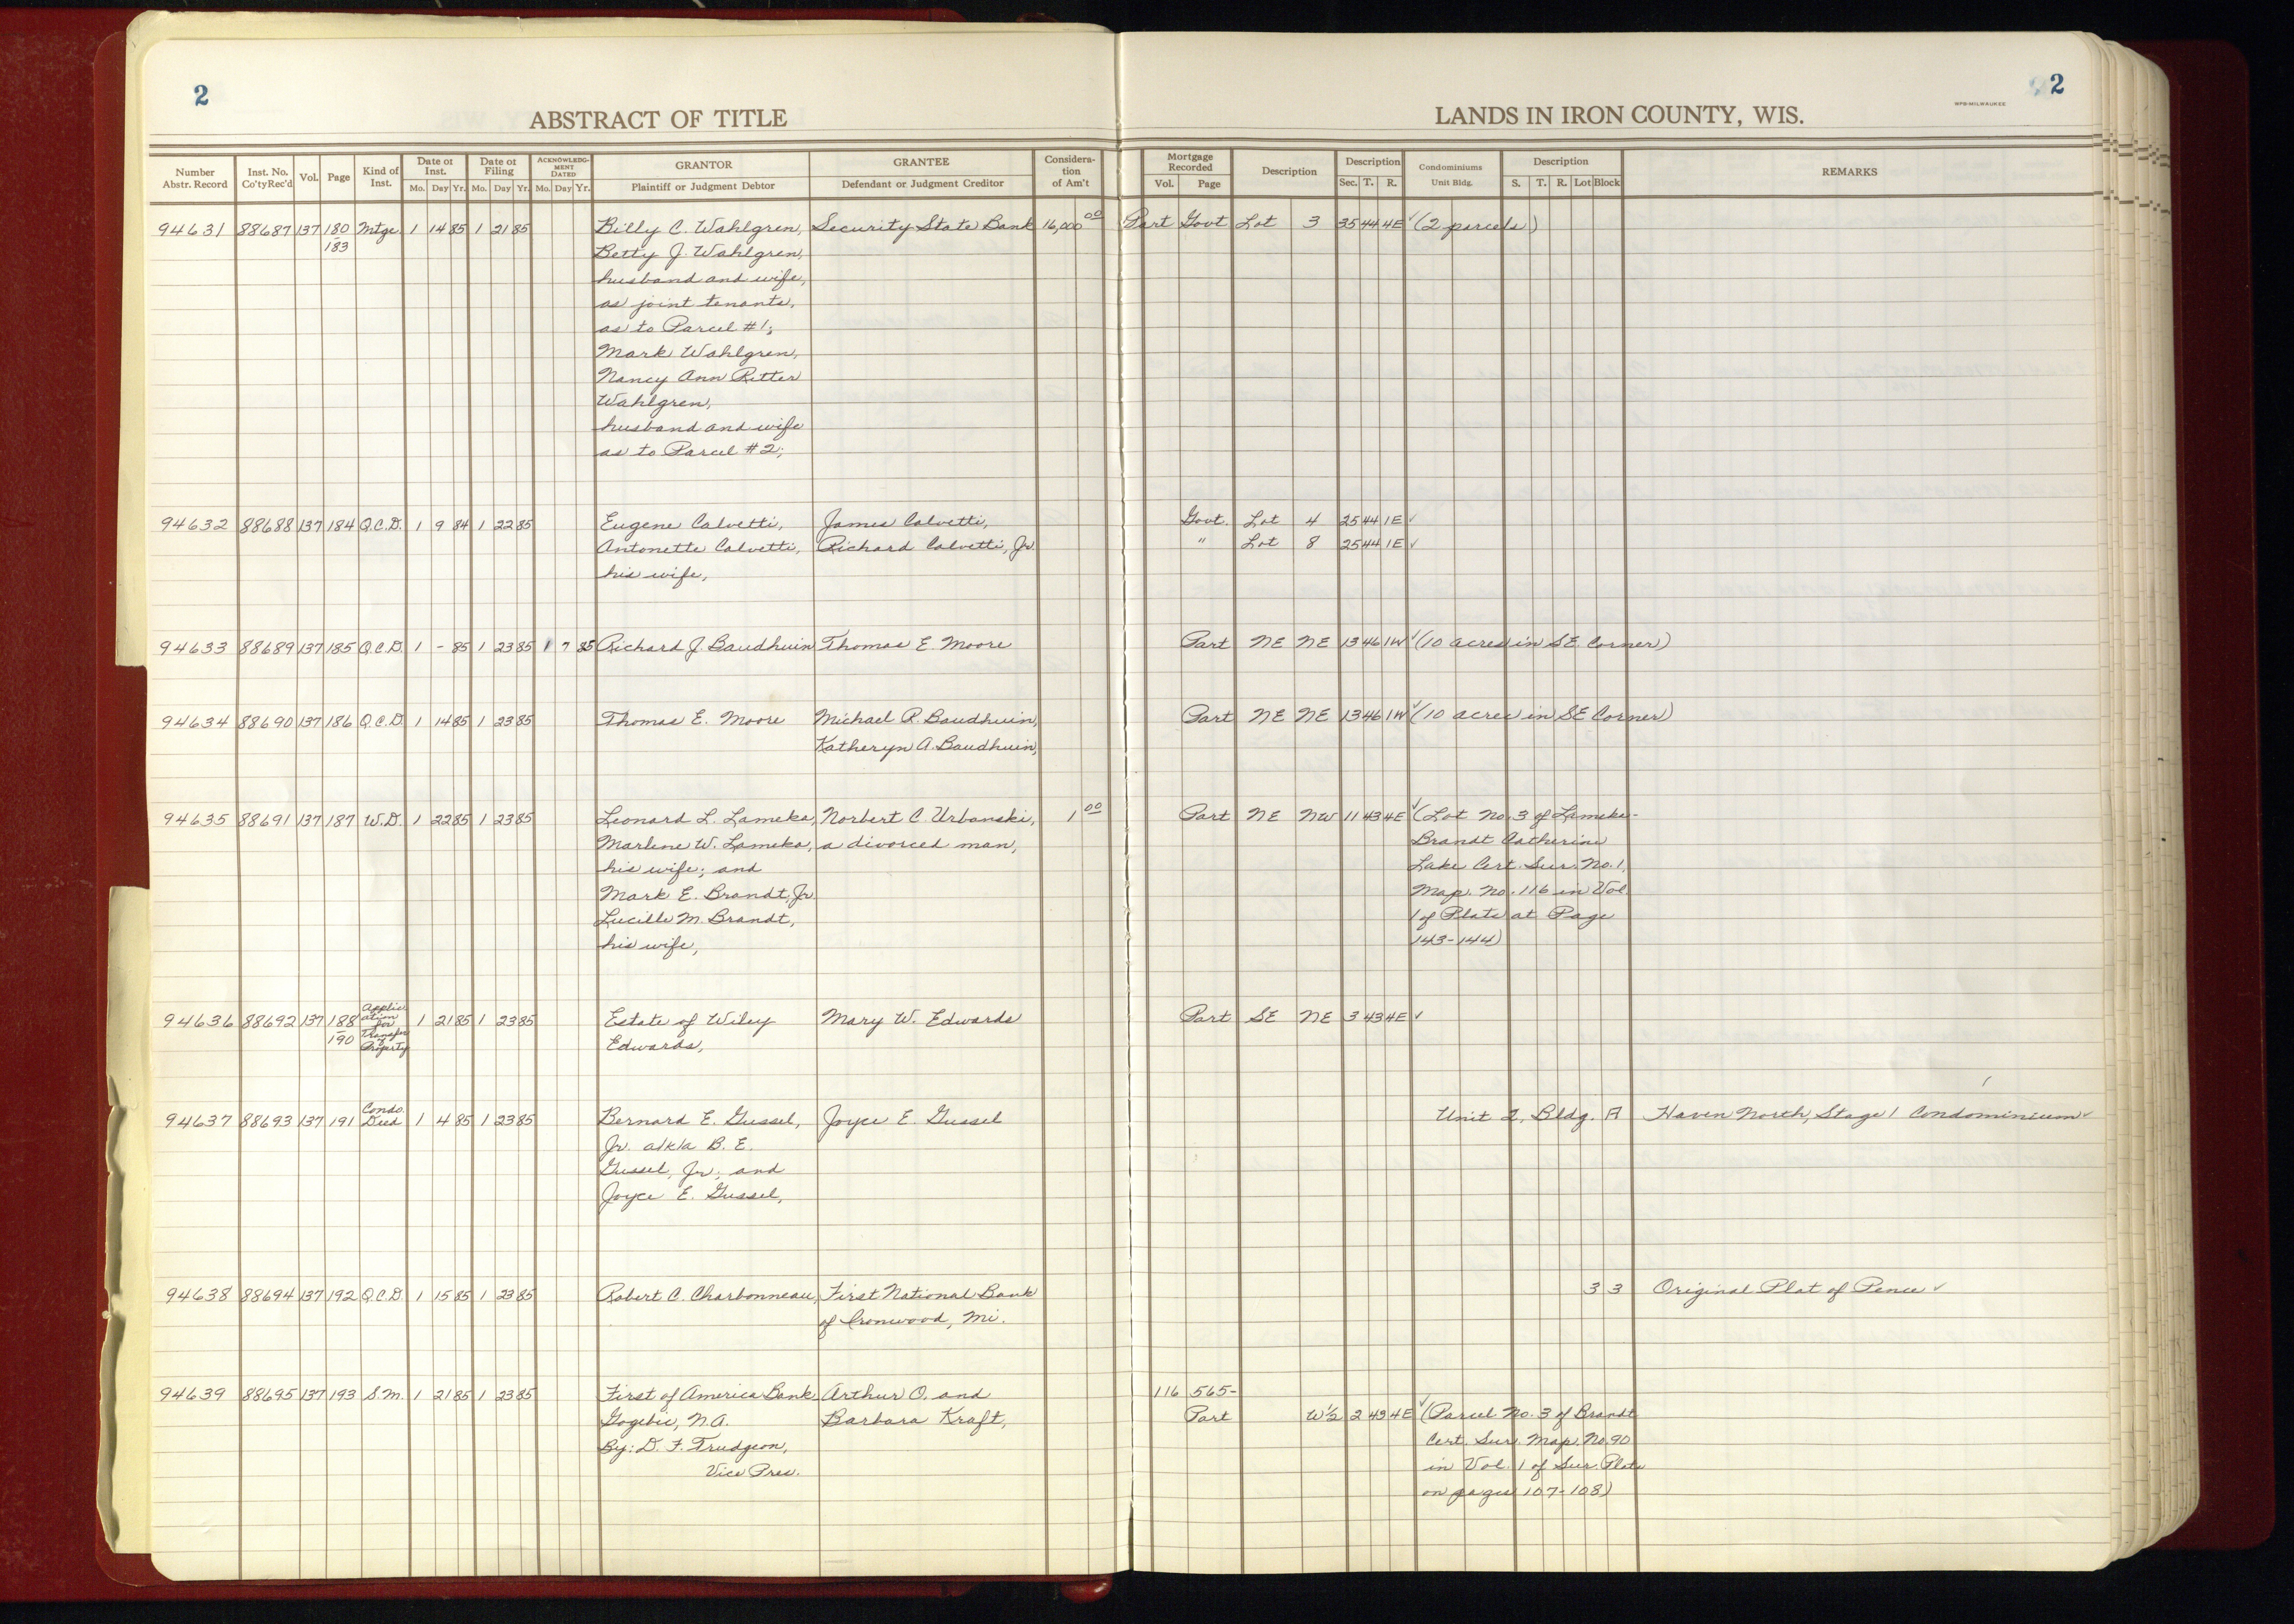 2
ABSTRACT OF TITLE
LANDS IN IRON COUNTY, WIS.
WPB-MILWAUKEE
2
Number Abstr. Record | Inst. No. Co'tyRec'd | Vol. | Page | Kind of Inst. | Date of Inst. Mo. Day Yr. | Date of Filing Mo. Day Yr. | ACKNOWLEDGMENT DATED Mo. Day Yr. | GRANTOR Plaintiff or Judgment Debtor | GRANTEE Defendant or Judgment Creditor | Consideration of Am't | Mortgage Recorded Vol. Page | Description | Description Sec. T. R. | Condominiums Unit Bldg. | Description S. T. R. Lot Block | REMARKS
94631 88687 137 180 Mtge. 1 14 85 1 21 85 Billy C. Wahlgren, Security State Bank 16,000 00 Part Govt Lot 3 35 44 4E ✓ (2 parcels)
183 Betty J. Wahlgren,
husband and wife,
as joint tenants,
as to Parcel #1;
Mark Wahlgren,
Nancy Ann Ritter
Wahlgren,
husband and wife
as to Parcel #2;
94632 88688 137 184 Q.C.D. 1 9 84 1 22 85 Eugene Calvetti, James Calvetti, Govt. Lot 4 25 44 1E ✓
Antonette Calvetti, Richard Calvetti, Jr. " Lot 8 25 44 1E ✓
his wife,
94633 88689 137 185 Q.C.D. 1 - 85 1 23 85 1 7 85 Richard J. Baudhuin Thomas E. Moore Part NE NE 13 46 1W ✓ (10 acres in SE. Corner)
94634 88690 137 186 Q.C.D. 1 14 85 1 23 85 Thomas E. Moore Michael R. Baudhuin, Part NE NE 13 46 1W ✓ (10 acres in SE Corner)
Katheryn A. Baudhuin,
94635 88691 137 187 W.D. 1 22 85 1 23 85 Leonard L. Lameka, Norbert C. Urbanski, 1 00 Part NE NW 11 43 4E ✓ (Lot No. 3 of Lameka-
Marlene W. Lameka, a divorced man, Brandt Catherine
his wife; and Lake Cert. Sur. No. 1,
Mark E. Brandt, Jr. Map. No. 116 in Vol.
Lucille M. Brandt, 1 of Plats at Page
his wife, 143-144)
94636 88692 137 188-190 Application for Transfer of Property 1 21 85 1 23 85 Estate of Wiley Mary W. Edwards Part SE NE 3 43 4E ✓
Edwards,
94637 88693 137 191 Condo. Deed 1 4 85 1 23 85 Bernard E. Gussel, Joyce E. Gussel Unit 2, Bldg. A Haven North, Stage 1 Condominium ✓
Jr. a/k/a B. E.
Gussel, Jr; and
Joyce E. Gussel,
94638 88694 137 192 Q.C.D. 1 15 85 1 23 85 Robert C. Charbonneau, First National Bank 3 3 Original Plat of Pence ✓
of Ironwood, Mi.
94639 88695 137 193 S.M. 1 21 85 1 23 85 First of America Bank- Arthur O. and 116 565-
Gogebic, N.A. Barbara Kraft, Part W½ 2 43 4E ✓ (Parcel No. 3 of Brandt
By: D. F. Trudgeon, Cert. Sur. Map. No. 90
Vice Pres. in Vol. 1 of Sur. Plats
on pages 107-108)